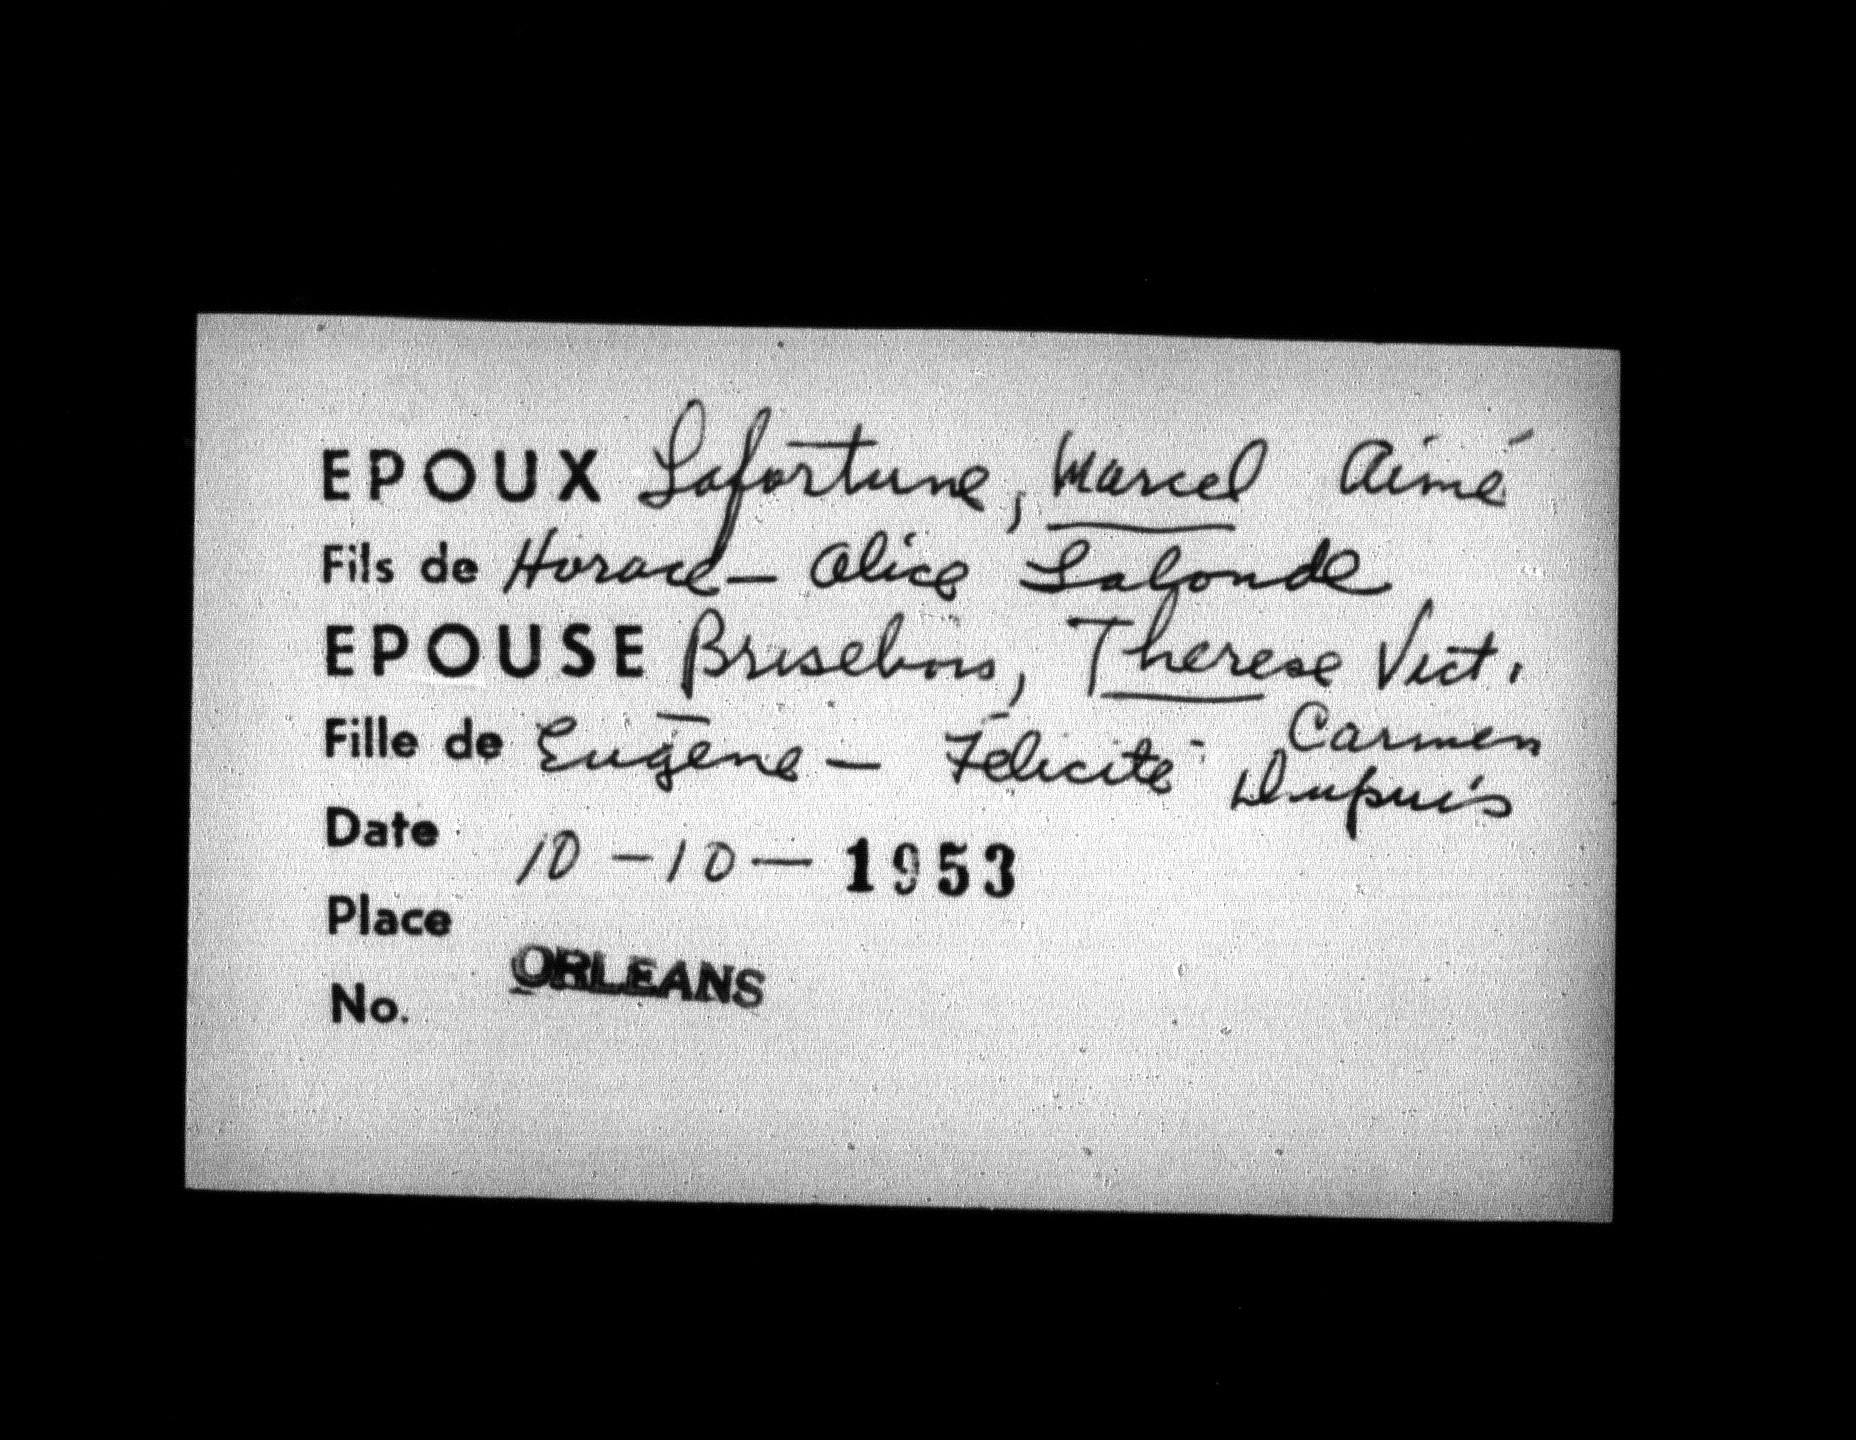 EPOUX Lafortune, Marcel Aimé
Fils de Horace - Alice Lalonde
EPOUSE Brisebois, Therese Vict.
Carmen
Fille de Eugène - Félicité Dupuis
Date 10-10-1953
Place
ORLEANS
No.